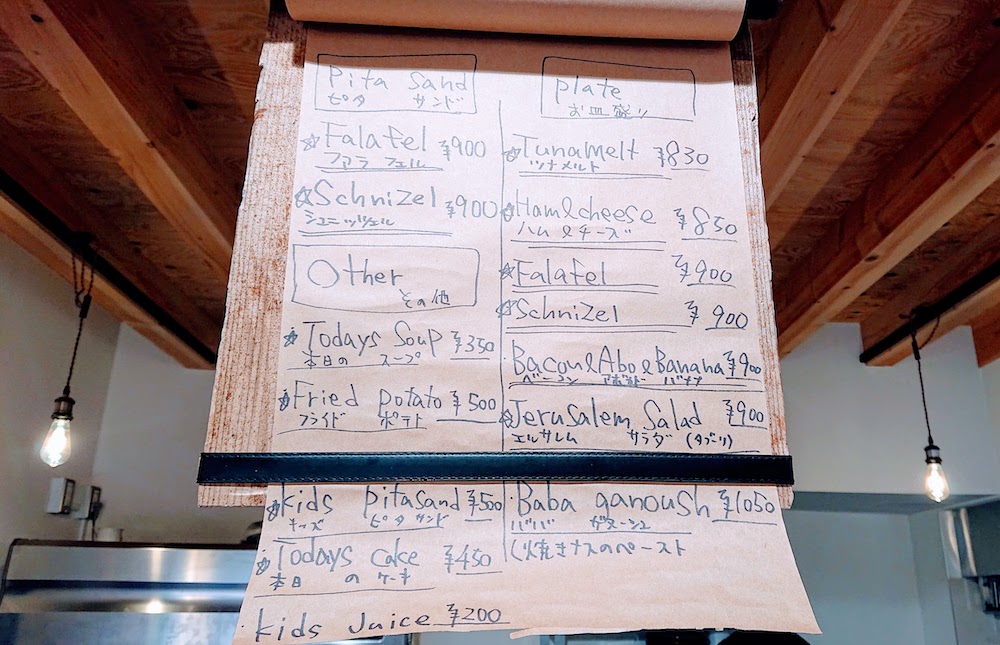 Pita Sand
ピタ サンド
☆Falafel ¥900
ファラフェル
☆Schnizel ¥900
シュニッツェル
Other
その他
☆Todays Soup ¥350
本日の スープ
☆Fried potato ¥500
フライド ポテト
☆kids pitasand ¥500
キッズ ピタサンド
☆Todays cake ¥450
本日 のケーキ
・kids Juice ¥200
plate
お皿盛り
☆Tunamelt ¥830
ツナメルト
☆Ham&cheese ¥850
ハム&チーズ
☆Falafel ¥900
☆Schnizel ¥900
Bacon&Abo&Banana ¥900
ベーコン アボカド バナナ
☆Jerusalem Salad ¥900
エルサレム サラダ (タブーリ)
・Baba ganoush ¥1050
ババ ガヌーシュ
(焼きナスのペースト